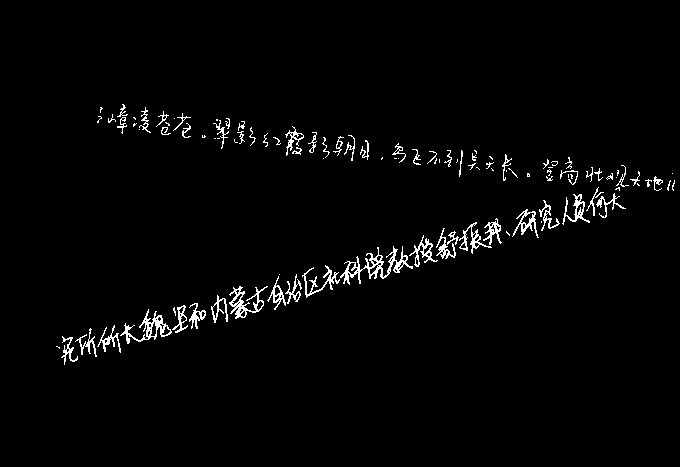 嶂凌苍苍。翠影红霞映朝日,鸟飞不到吴天长。登高壮观天地
究所所长魏坚和内蒙古自治区社科院教授舒振邦、研究员何天